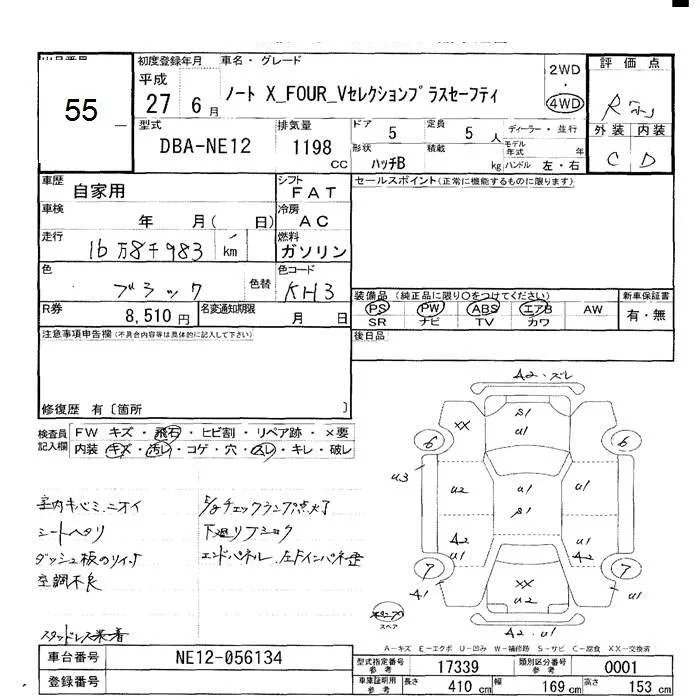 55
初度登録年月
平成
27 6月
車名・グレード
ノート X_FOUR_Vセレクションプラスセーフティ
2WD
・
4WD
評価点
R
外装 内装
C D
型式
DBA-NE12
排気量
1198
CC
ドア 5
定員 5 人
ディーラー・並行
形状
ハッチB
積載
kg
モデル年式
年
ハンドル 左・右
車歴 自家用
シフト FAT
セールスポイント(正常に機能するものに限ります)
車検
年 月( 日)
冷房 AC
走行
16万8千983 km
燃料 ガソリン
色
ブラック
色替
色コード
KH3
装備品 (純正品に限り○をつけてください)
新車保証書
R券
8,510円
名変通知期限
月 日
PS PW ABS エアB AW
有・無
SR ナビ TV カワ
注意事項申告欄(不具合内容等は具体的に記入して下さい)
後日品
修復歴 有〔箇所 〕
検査員記入欄
FW キズ・飛石・ヒビ割・リペア跡・×要
内装 キズ・汚レ・コゲ・穴・スレ・キレ・破レ
室内キバミ、ニオイ
シートヘタリ
空調不良
スタッドレス装着
チェックランプ点灯
下廻リフショク
エンドパネル、左ドインパネ歪
A2・ズレ
S1
U1
XX
6
6
U3
U2
U1
U1
S1
A2
U1
A2
U1
7
7
A1
A1
XX
U2
スペア
A2・U1
A-キズ E-エクボ U-凹み W-補修跡 S-サビ C-腐食 XX-交換済
車台番号 NE12-056134
登録番号
型式指定番号参考 17339
類別区分番号参考 0001
車庫証明用参考 長さ 410 cm 幅 169 cm 高さ 153 cm